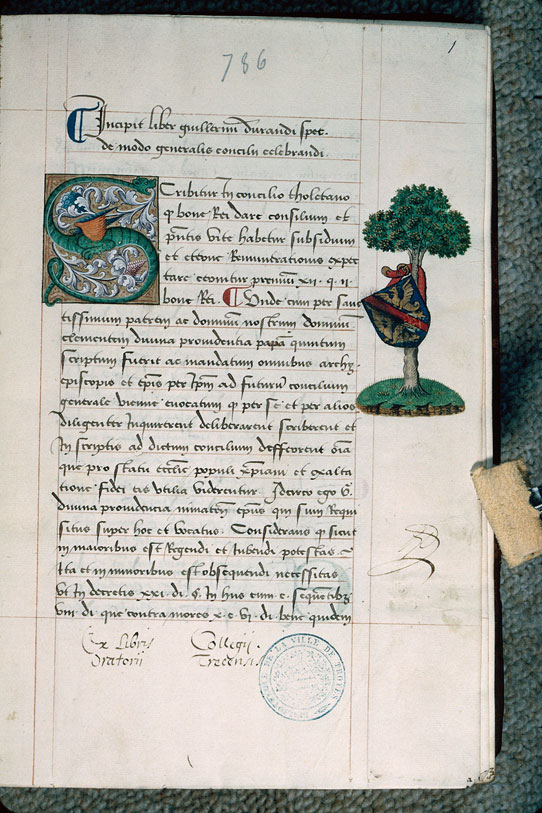 786
1
Incipit liber guillermi durandi spec.
de modo generalis concilii celebrandi.
Scribitur In concilio tholetano
q bone Rei dare consilium et
pntis vite habetur subsidium
et etterne Remunerationis expec
tare cernitur premium xii. q. ii.
bone Rei. Unde cum per sanc
tissimum patrem ac dominum nostrum dominum
clementem divina providentia papam quintum
scriptum fuerit ac mandatum omnibus archi
episcopis et epis per Ipm ad futurum concilium
generale vienne evocatum q per se et per alios
diligenter Inquirerent deliberarent scriberent et
In scriptis ad dictum concilium defferrent oia
que pro statu ecclie populi xpiani et exalta
tione fidei eis utilia viderentur. Idcirco ego G.
divina providencia mimaten epus qui sum Requi
situs super hoc et vocatus. Considerans q sicut
in maioribus est Regendi et Iubendi potestas
Ita et in minoribus est obsequendi necessitas
ut In decretis xxi. di. §. In hiis cum e. sequetibz
viii. di. que contra mores x. e. vi. di. bene quidem
Ex Libris Collegii
Oratorii Trecensis
BIBLIOTHEQUE DE LA VILLE DE TROYES